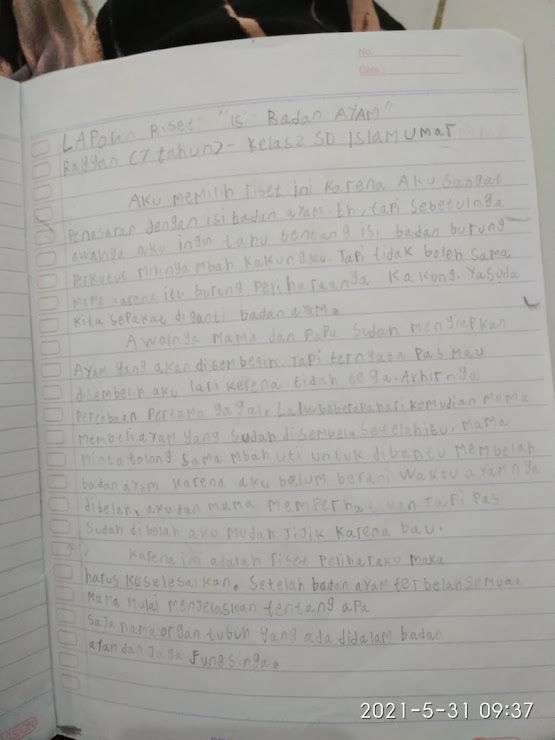 No:
Date:
LAPoran Riset "isi Badan AYAM"
Rayyan (7 tahun) - Kelas 2 SD Islam Umar
Aku memilih riset ini karena Aku sangat
Penasaran dengan isi badan ayam. Eh, tapi sebetulnya
awalnya aku ingin tahu tentang isi badan burung
Perkutus miliknya Mbah Kakungku. Tapi tidak boleh sama
Mama karena itu burung Peliharaanya Kakung. Yasuda
kita sepakat diganti badan ayam.
Awalnya Mama dan Papa sudah menyiapkan
Ayam yang akan disembelih. Tapi ternyata Pas mau
disembelih aku lari kerena tidak tega. Akhirnya
Percobaan Pertama gagal. Lalu beberapa hari kemudian Mama
Membeli ayam yang sudah disembeli setelah itu, Mama
Minta tolong sama Mbah uti untuk dibantu membelah
badan ayam karena aku belum berani waktu ayamnya
dibelah, aku dan mama memperhatikan Tapi Pas
sudah dibelah aku mudah Jijik karena bau.
Karena ini adalah riset maka
harus kuselesaikan. Setelah badan ayam terbelah semua
Mama mulai menjelaskan tentang apa
saja nama organ tubuh yang ada didalam badan
ayam dan Juga Fungsinya.
2021-5-31 09:37